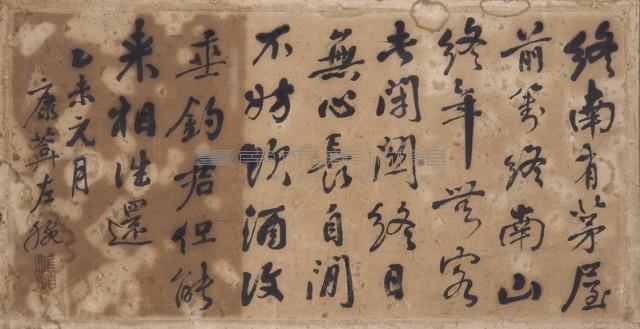 終南有茅屋
前對終南山
終年無客
長閉關終日
無心長自閒
不妨飲酒復
垂釣君但能
來相往還
乙未元月
康 左腕